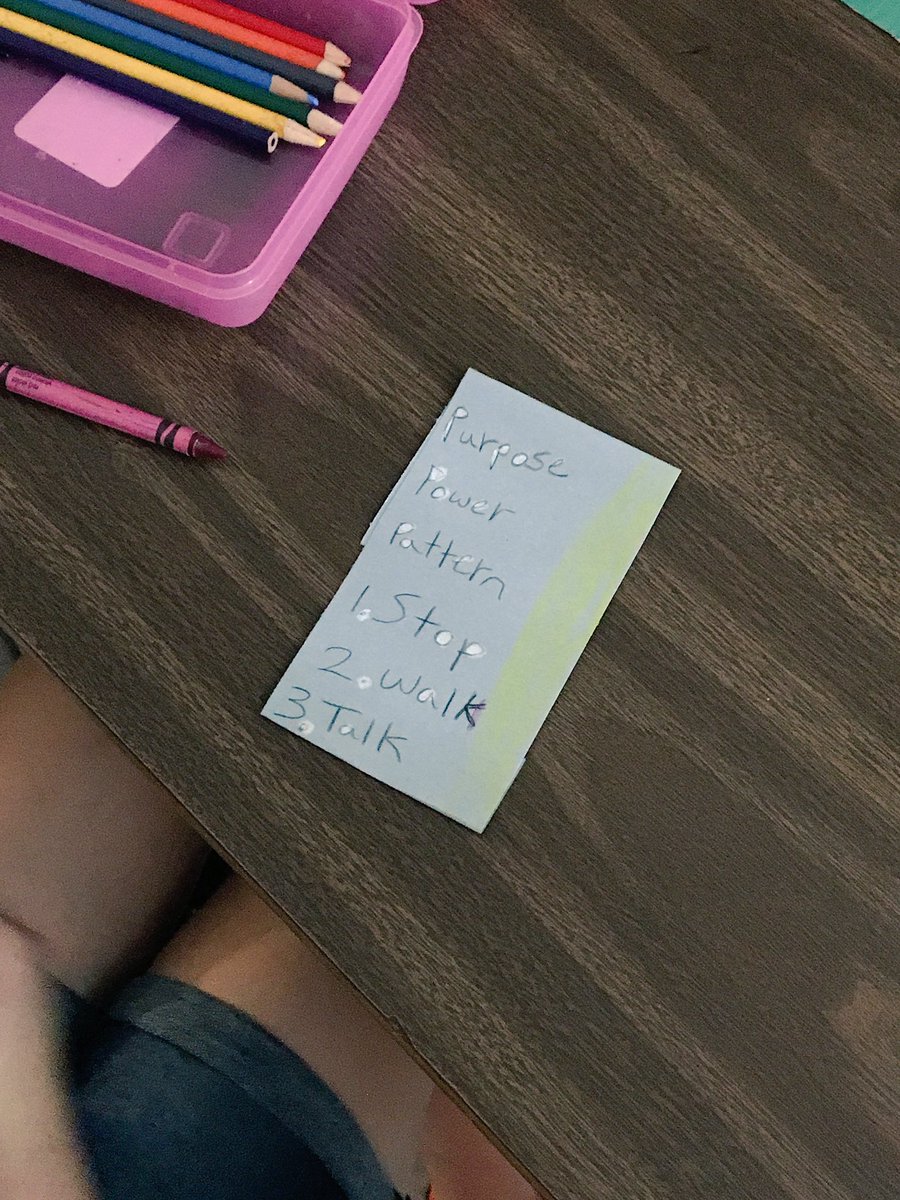 Purpose
Power
Pattern
1. Stop
2. Walk
3. Talk